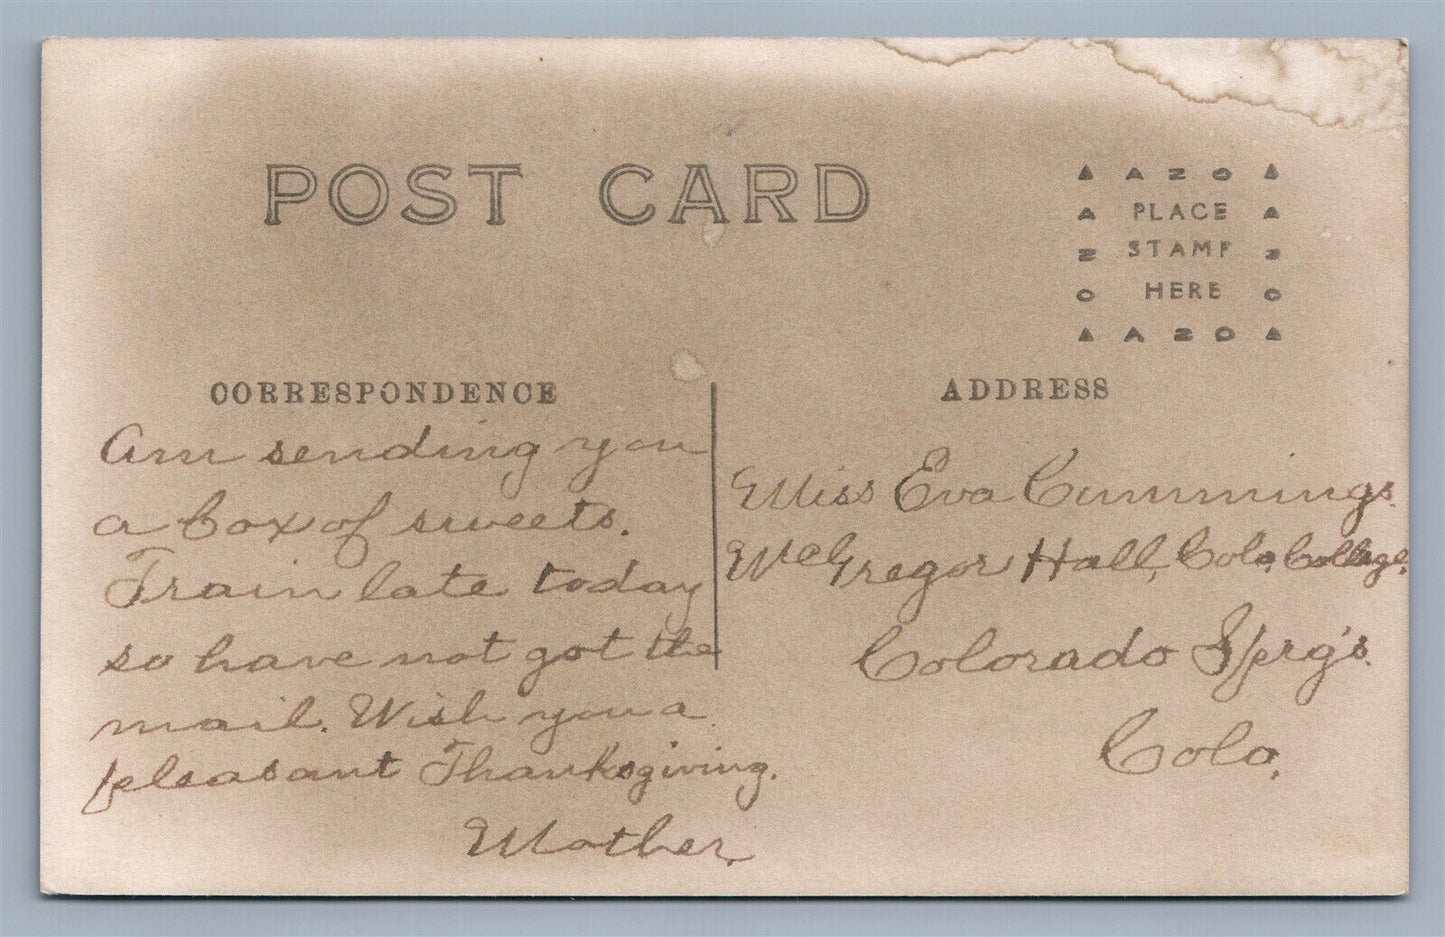 POST CARD
▲ A Z O ▲
A PLACE A
Z STAMP Z
O HERE O
▲ A Z O ▲
CORRESPONDENCE
Am sending you
a box of sweets.
Train late today
so have not got the
mail. Wish you a
pleasant Thanksgiving.
Mother.
ADDRESS
Miss Eva Cummings.
McGregor Hall, Colo. College,
Colorado Sprg's.
Colo.